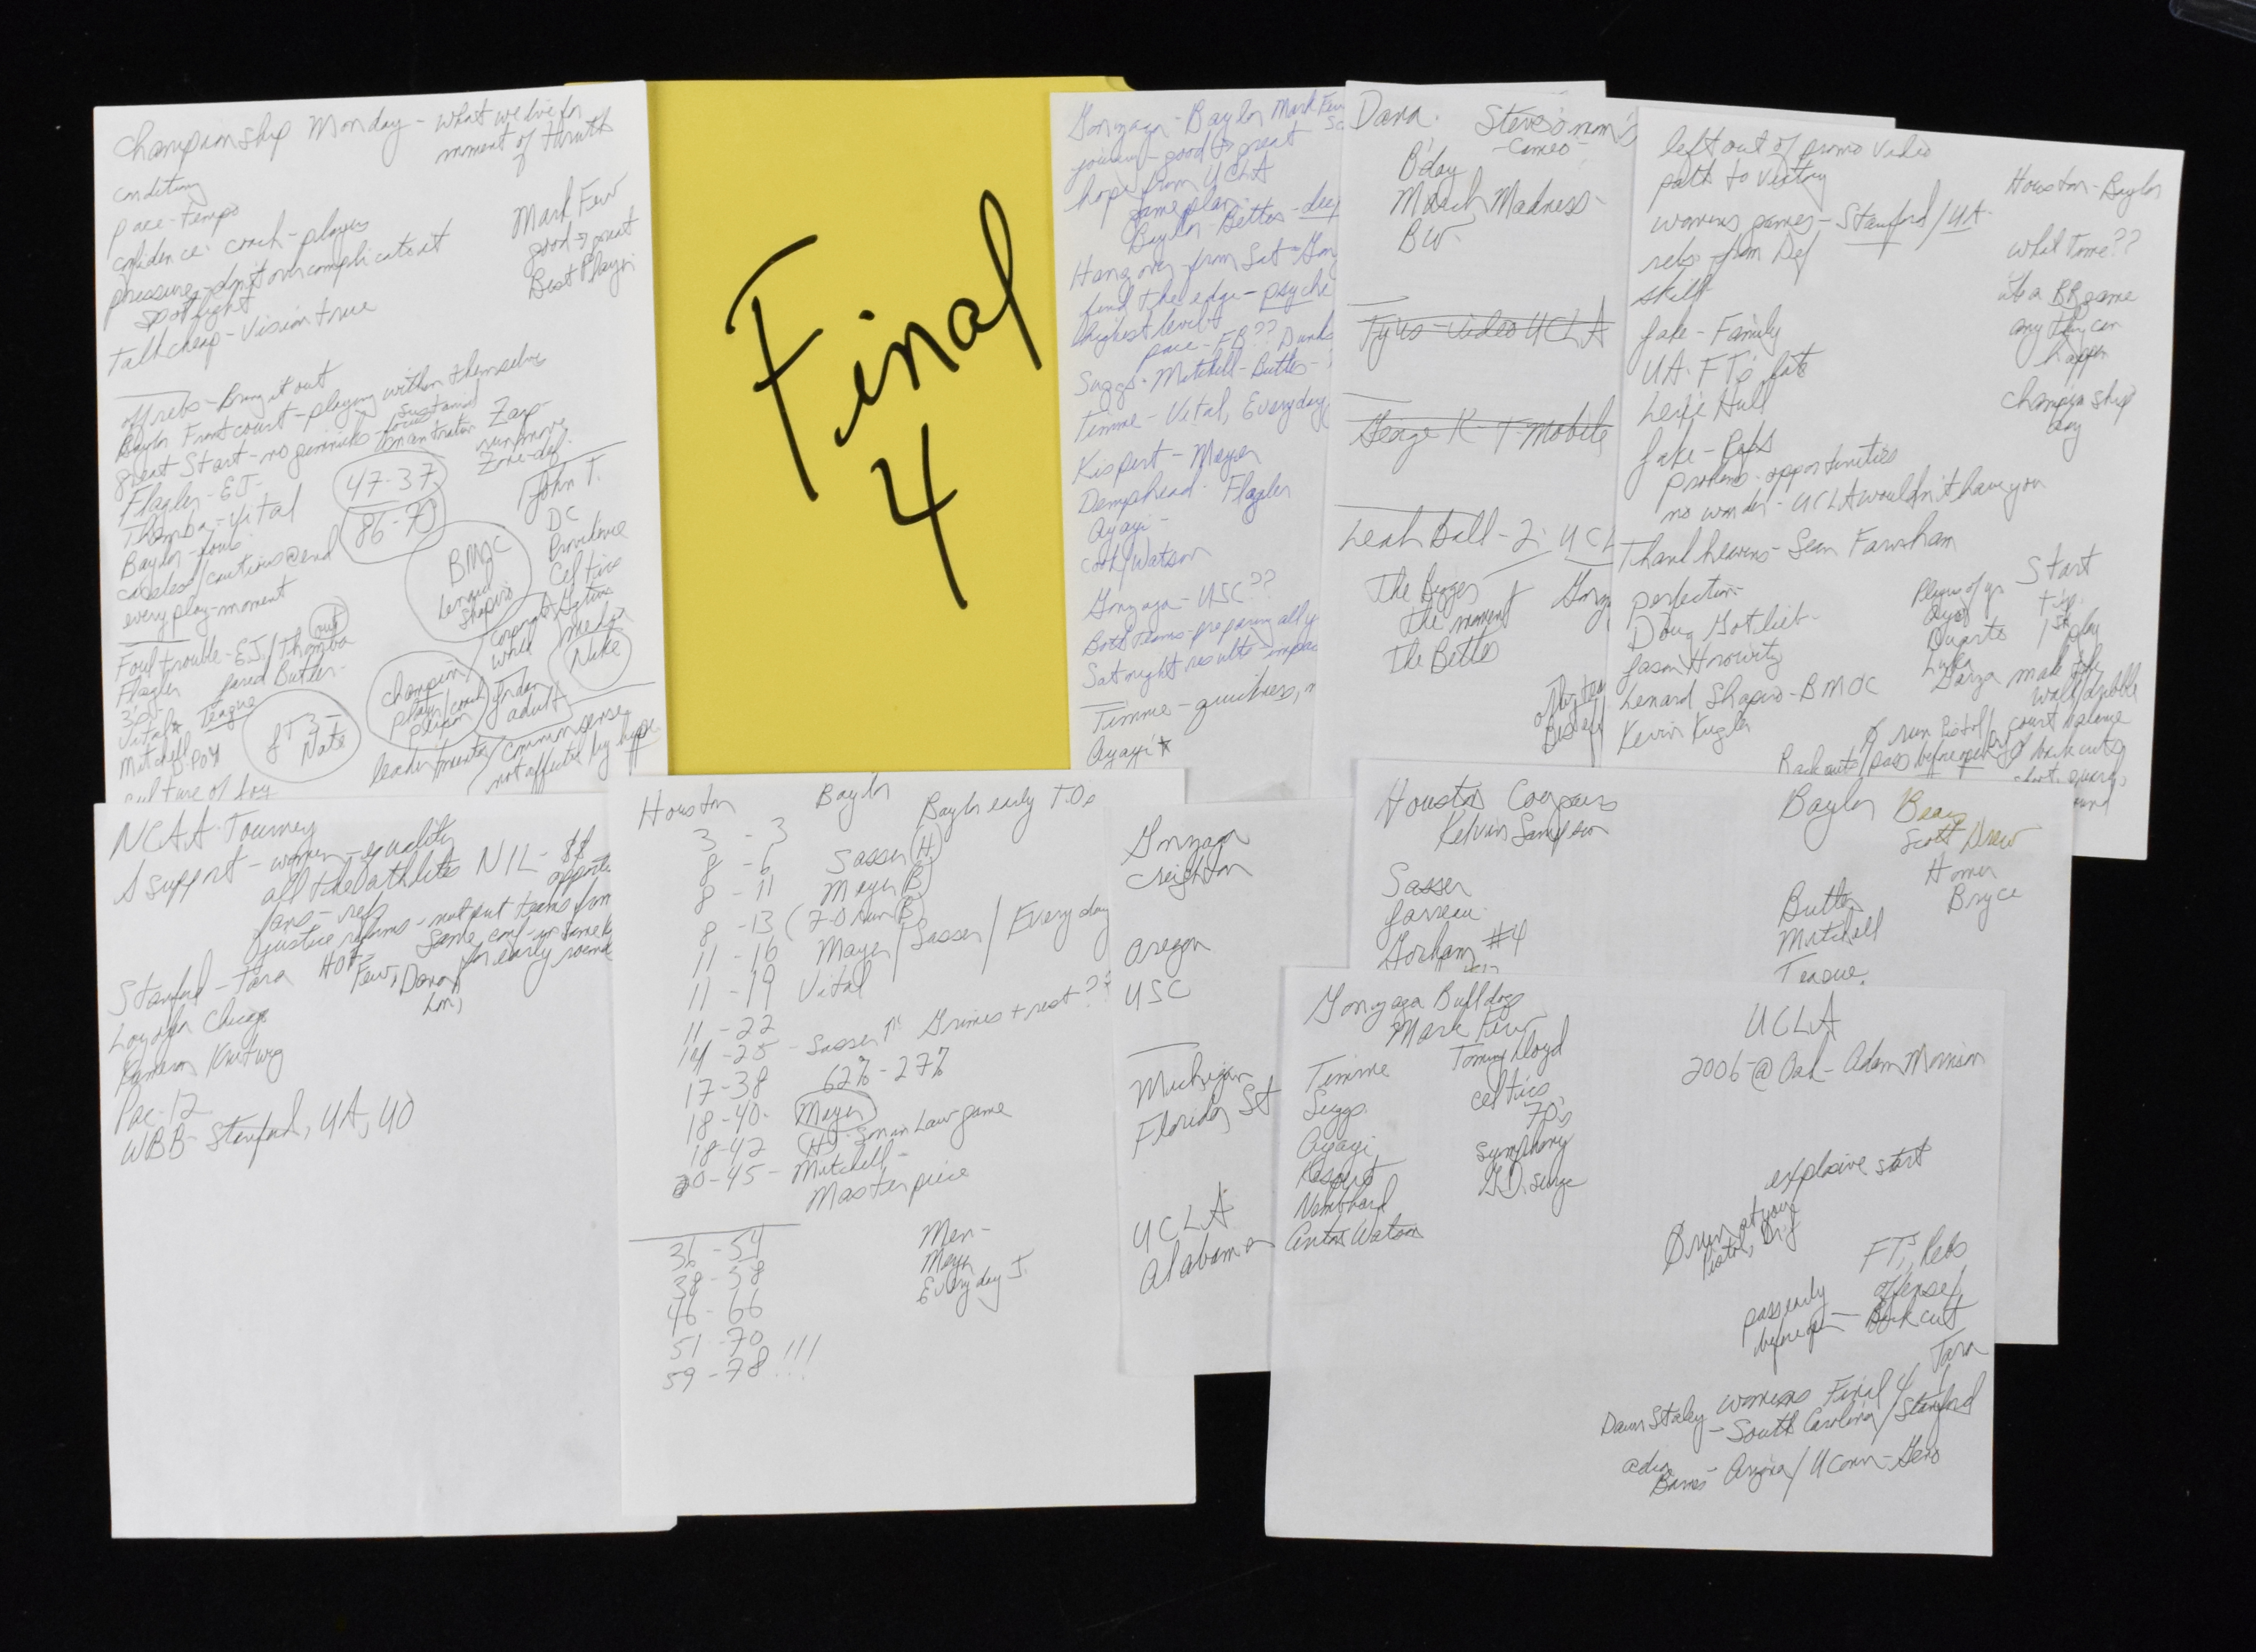 Championship Monday - what we live for
moment of thruth
conditions
pace - tempo
confidence: coach - players
pressure - don't overcomplicate it
spotlight
Talk cheap - Vision true
Mark Few
good → great
Best Player
off rebs - Bring it out
Baylor Front court - playing within themselves
great Start - no gimmicks - focus
sustained
Flagler - EJ -
Thamba - Vital
Baylor - fouls
careless/cautious @ end
every play - moment
Zarp -
run/move
Zone - def.
47-37
86-70
BMOC
Lenard
Shapiro
John T.
DC
Providence
Celtics
media
Nike
corporate
world
Foul trouble - EJ / Thamba
out
Flagler Jared Butler -
3's -
Vital* Teague
Mitchell DPOY
culture of Joy
8 T 3 -
Nate
champion
player/coach
person
Jordan
adult
leader/mentor
common sense
not affected by hype
Final
4
Gonzaga - Baylor Mark Few
journey - good to great
hope from UCLA
game plan -
Baylor - Better -
Hang over from Sat -
find the edge -
highest level
pace - FB?? Dunks
Suggs - Mitchell - Butler -
Timme - Vital, Everyday
Kispert - Mayer
Flagler
Ayayi -
Cook/Watson
Gonzaga - USC??
Both teams preparing all
Sat night results
Timme - quickness,
Ayayi *
Dana. Steve's mom's
- Cameo -
B'day
March Madness -
BW
Tyus - video UCLA
George K - T-mobile
Leah Ball - 2
The Bigger
The moment
The Better
left out of promo video
path to victory
womens games - Stanford/UA -
rebs from Def
skill
Jake - Family
UA - FT's late
Lexie Hull
Jake - Refs
problems - opportunities
no wonder - UCLA wouldn't have you
Thank heavens - Sean Farnham
perfection -
Doug Gotlieb -
Jason Horowitz
Lenard Shapiro - BMOC
Kevin Kugler
Houston - Baylor
What Time??
its a BB game
anything can
happen
Championship
day
Player of yr
Ayo
Duarte
Luka
Garza
Start
tip.
1st play
make the
walk/dribble
Ø run Pistol
court balance
back cuts
Back cuts / pass before open
NCAA Tourney
I support - women - equality
all the athletes NIL - $$
fans - refs
justice reforms - not put teams from
same conf in same
for early rounds
Stanford - Tara HOF
Few, Dana
Loyola Chicago
Kameron Krutwig
Pac-12
WBB - Stanford, UA, UO
Houston Baylor Baylor early T.O.s
3 - 3
8 - 6 Sasser (H)
8 - 11 Mayer (B)
8 - 13 (7-0 run B)
11 - 16 Mayer / Sasser / Everyday
11 - 19 Vital
11 - 22
14 - 25 - Sasser 11 Grimes + rest??
17 - 38 62% - 27%
18 - 40 - Mayer
18 - 42 (H) - Son in Law game
20 - 45 - Mitchell -
Masterpiece
31 - 54
38 - 58
46 - 66
51 - 70
59 - 78 !!!
Men -
Mayer
Everyday J.
Gonzaga
Creighton
Oregon
USC
Michigan
Florida St
UCLA
Alabama
Houston Cougars
Kelvin Sampson
Sasser
Jarreau
Gorham #4
Baylor Bears
Scott Drew
Homer
Bryce
Butler
Mitchell
Teague
Gonzaga Bulldogs
Mark Few
Timme Tommy Lloyd
Suggs Celtics
70's
Ayayi Symphony
Kispert G.D. surge
Nembhard
Anton Watson
UCLA
2006 - @ Oak - Adam Morrison
explosive start
Ø run at you
Pistol, Drif
FT's, Rebs
offense/
pass early
before open - Back cut
Tara
womens Final 4
Dawn Staley - South Carolina / Stanford
Adia
Barnes - Arizona / UConn - Geno